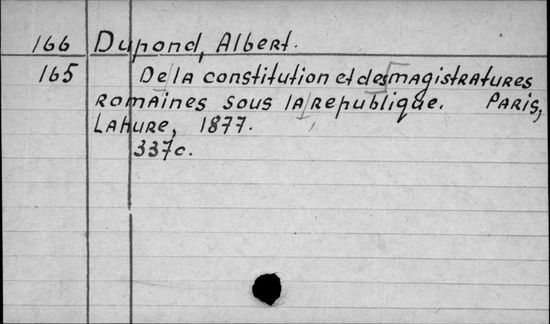 166 Dupond, Albert.
165 De la constitution et des magistratures
romaines sous la republique. Paris,
Lahure, 1877.
337c.